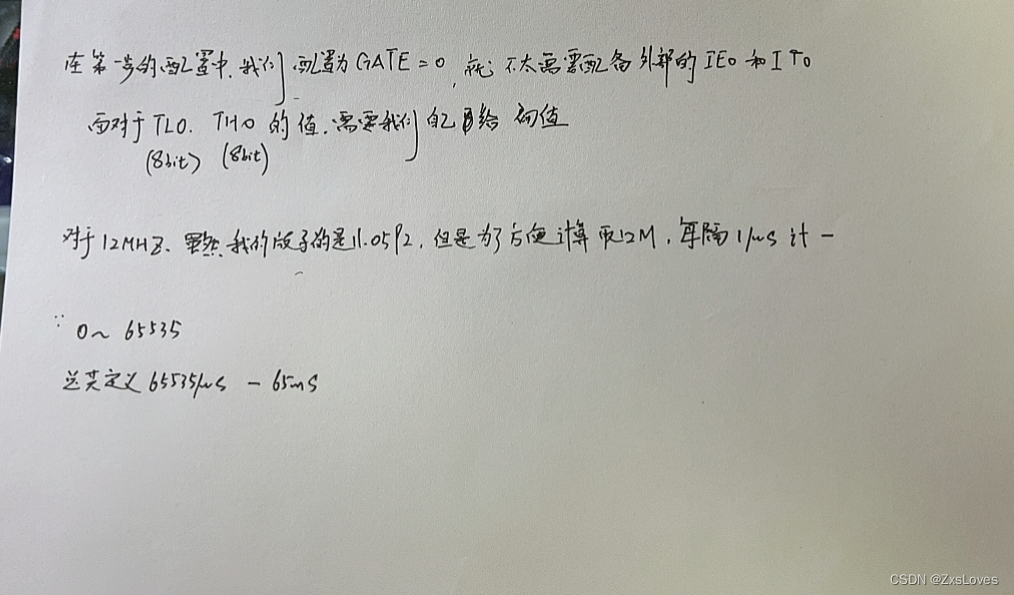 在第一步的配置中,我们配置为GATE=0,就不太需要配备外部的IE0和IT0
而对于TL0. TH0 的值.需要我们自己给初值
(8bit) (8bit)
对于12MHZ、虽然我的板子的是11.0592,但是为了方便计算取12M,每隔1μs计一
∵ 0~65535
总共定义65535μs - 65ms
CSDN @ZxsLoves